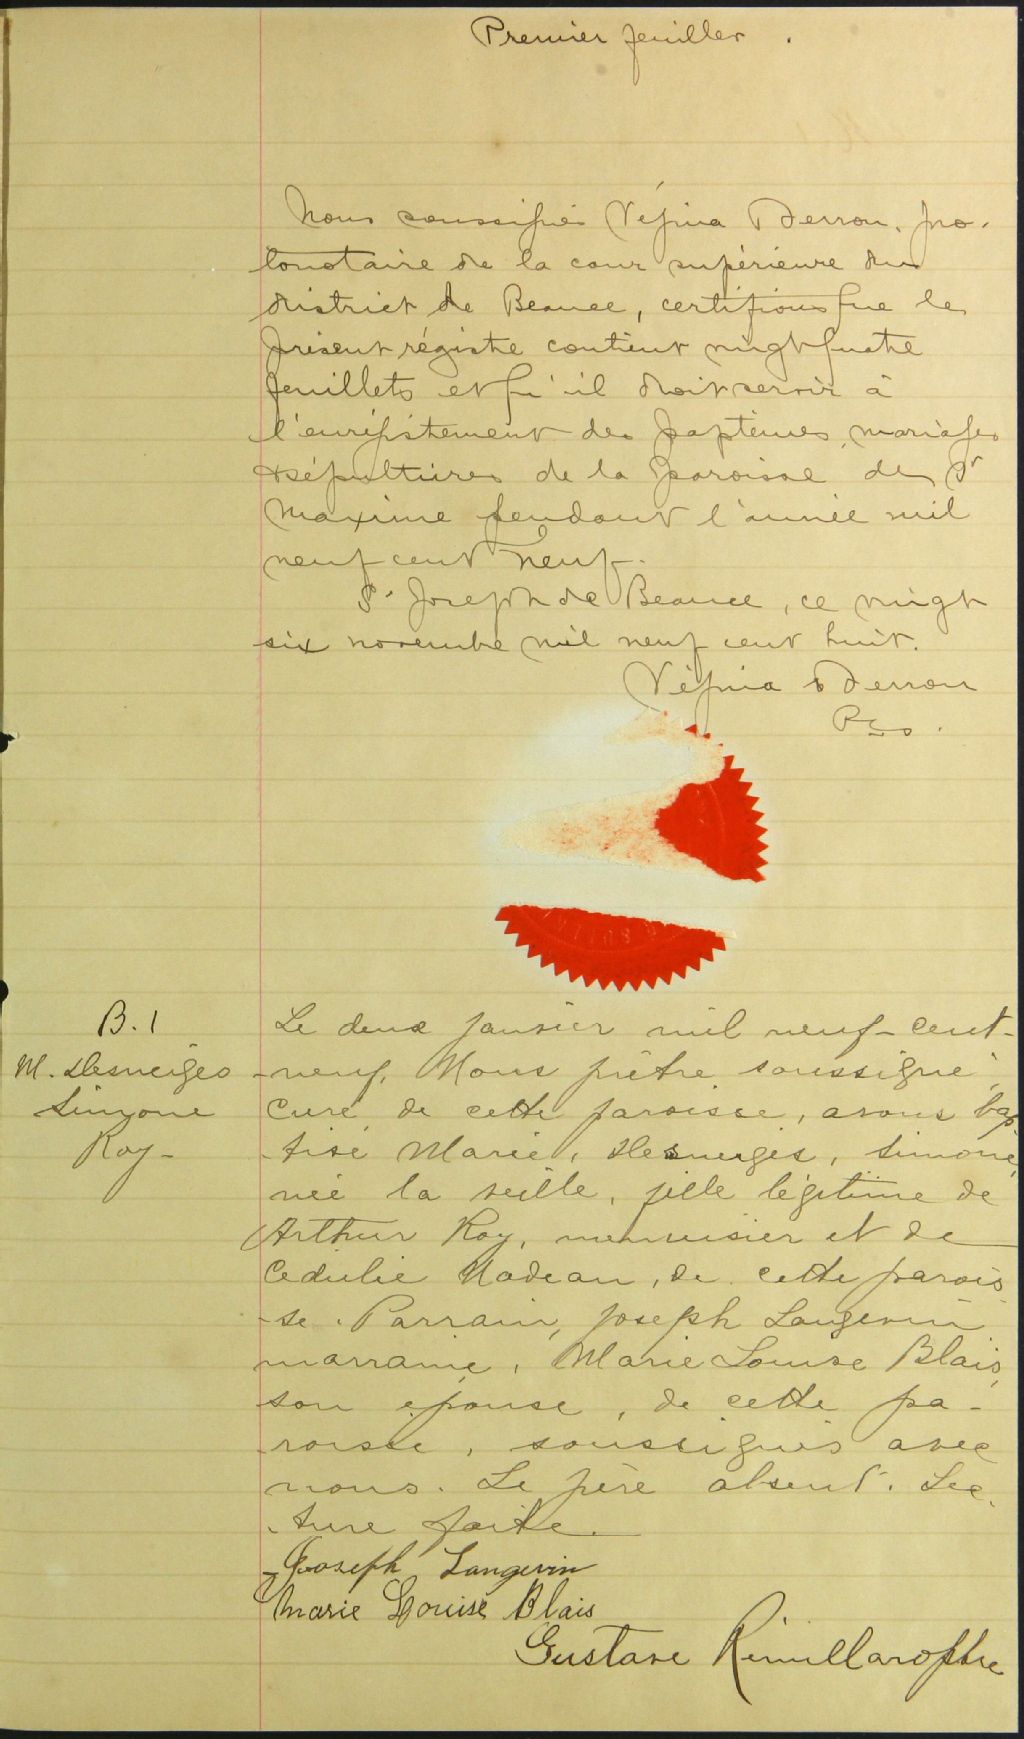 Premier feuillet.
Nous soussignés Vézina & Derron, pro-
tonotaire de la cour supérieure du
district de Beauce, certifions que le
présent régistre contient vingt quatre
feuillets et qu'il doit servir à
l'enrégistrement des baptêmes, mariages
& sépultures de la paroisse de St
Maxime pendant l'année mil
neuf cent neuf.
St Joseph de Beauce, ce vingt
six novembre mil neuf cent huit.
Vézina &
P.C.S.
B. 1
M. Desneiges
Simone
Roy-
Le deux janvier mil neuf-cent-
-neuf, Nous prêtre soussigné,
Curé de cette paroisse, avons bap-
-tisé Marie, Desneiges, Simone,
née la veille, fille légitime de
Arthur Roy, menuisier et de
Cédulie Nadeau, de cette parois-
-se. Parrain, Joseph Langevin
marraine, Marie Louise Blais,
son épouse, de cette pa-
-roisse, soussignés avec
nous. Le père absent. Lec-
-ture faite.
Joseph Langevin
Marie Louise Blais
Gustave Rémillard Ptre